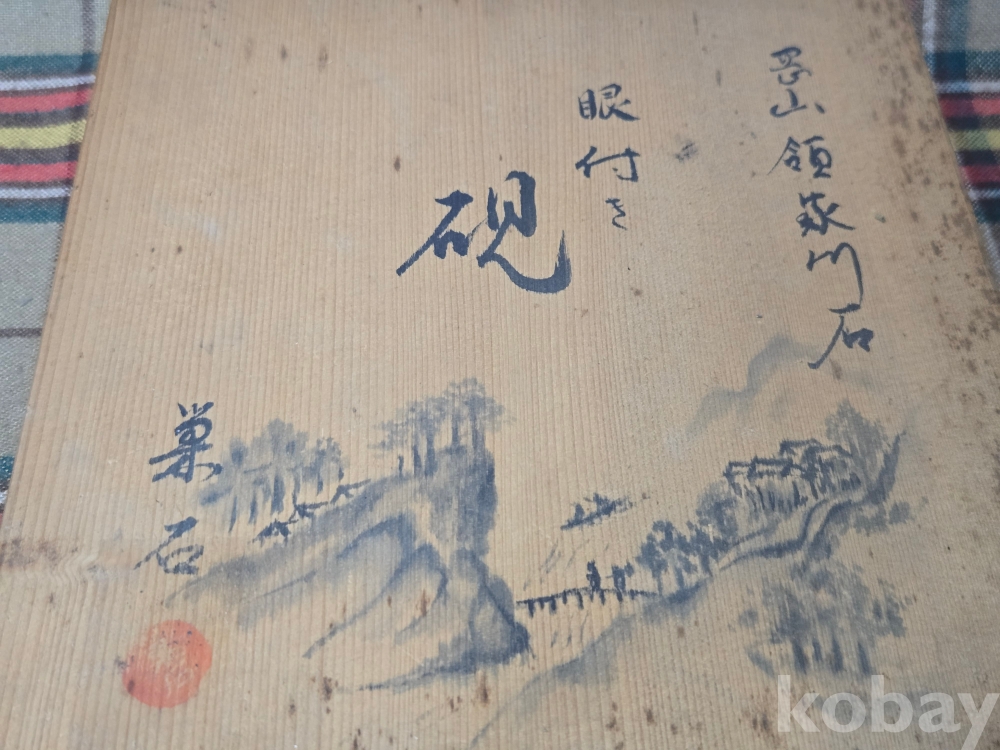 岡山領家川石
眼付き
硯
巣石
kobay